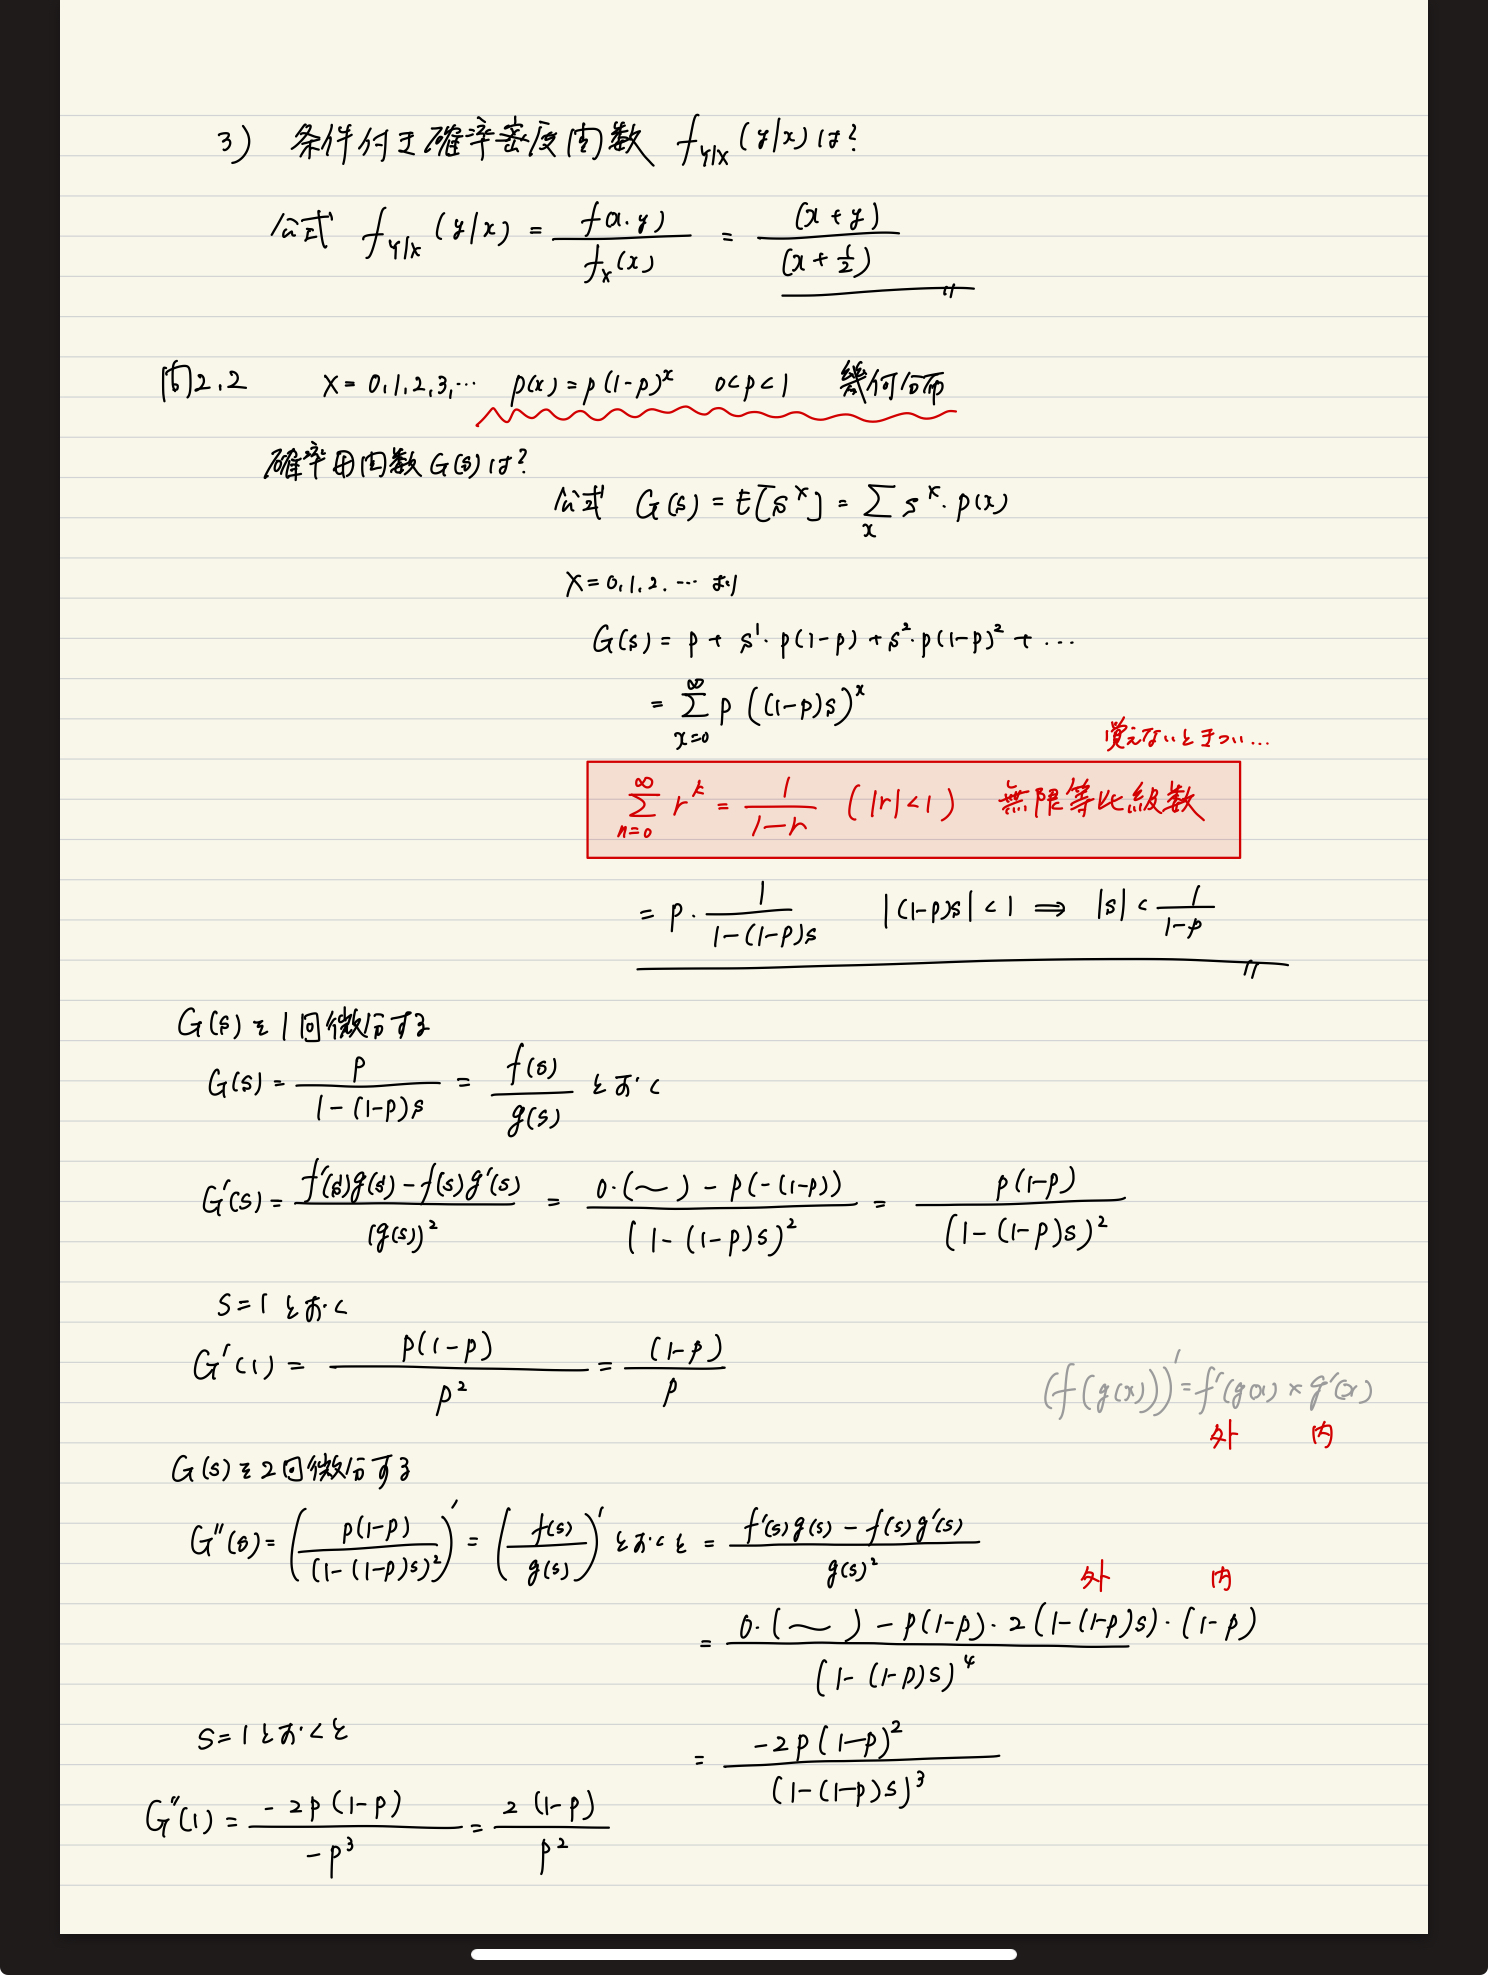 3) 条件付き確率密度関数 f_{Y|X}(y|x)は?
公式 f_{Y|X}(y|x) = f(x.y) / f_X(x) = (x+y) / (x+1/2)
問2.2 X=0,1,2,3,… p(x)=p(1-p)^x 0<p<1 幾何分布
確率母関数G(s)は?
公式 G(s)=E[s^x]=Σ_x s^x・p(x)
X=0,1,2.… より
G(s)= p + s^1・p(1-p)+s^2・p(1-p)^2+…
= Σ_{x=0}^{∞} p ((1-p)s)^x
覚えないときつい…
Σ_{n=0}^{∞} r^k = 1/(1-r) (|r|<1) 無限等比級数
= p・1/(1-(1-p)s) |(1-p)s|<1 ⟹ |s|<1/(1-p)
G(s)を1回微分する
G(s)= p/(1-(1-p)s) = f(s)/g(s) とおく
G'(s)= (f'(s)g(s)-f(s)g'(s))/(g(s))^2 = (0・(〜)-p(-(1-p)))/(1-(1-p)s)^2 = p(1-p)/(1-(1-p)s)^2
s=1とおく
G'(1)= p(1-p)/p^2 = (1-p)/p
(f(g(x)))'=f'(g(x)×g'(x)
外 内
G(s)を2回微分する
G''(s)=(p(1-p)/(1-(1-p)s)^2)' = (f(s)/g(s))' とおくと = (f'(s)g(s)-f(s)g'(s))/g(s)^2
外 内
= (0・(〜)-p(1-p)・2(1-(1-p)s)・(1-p))/(1-(1-p)s)^4
= -2p(1-p)^2/(1-(1-p)s)^3
s=1とおくと
G''(1)= -2p(1-p)/-p^3 = 2(1-p)/p^2